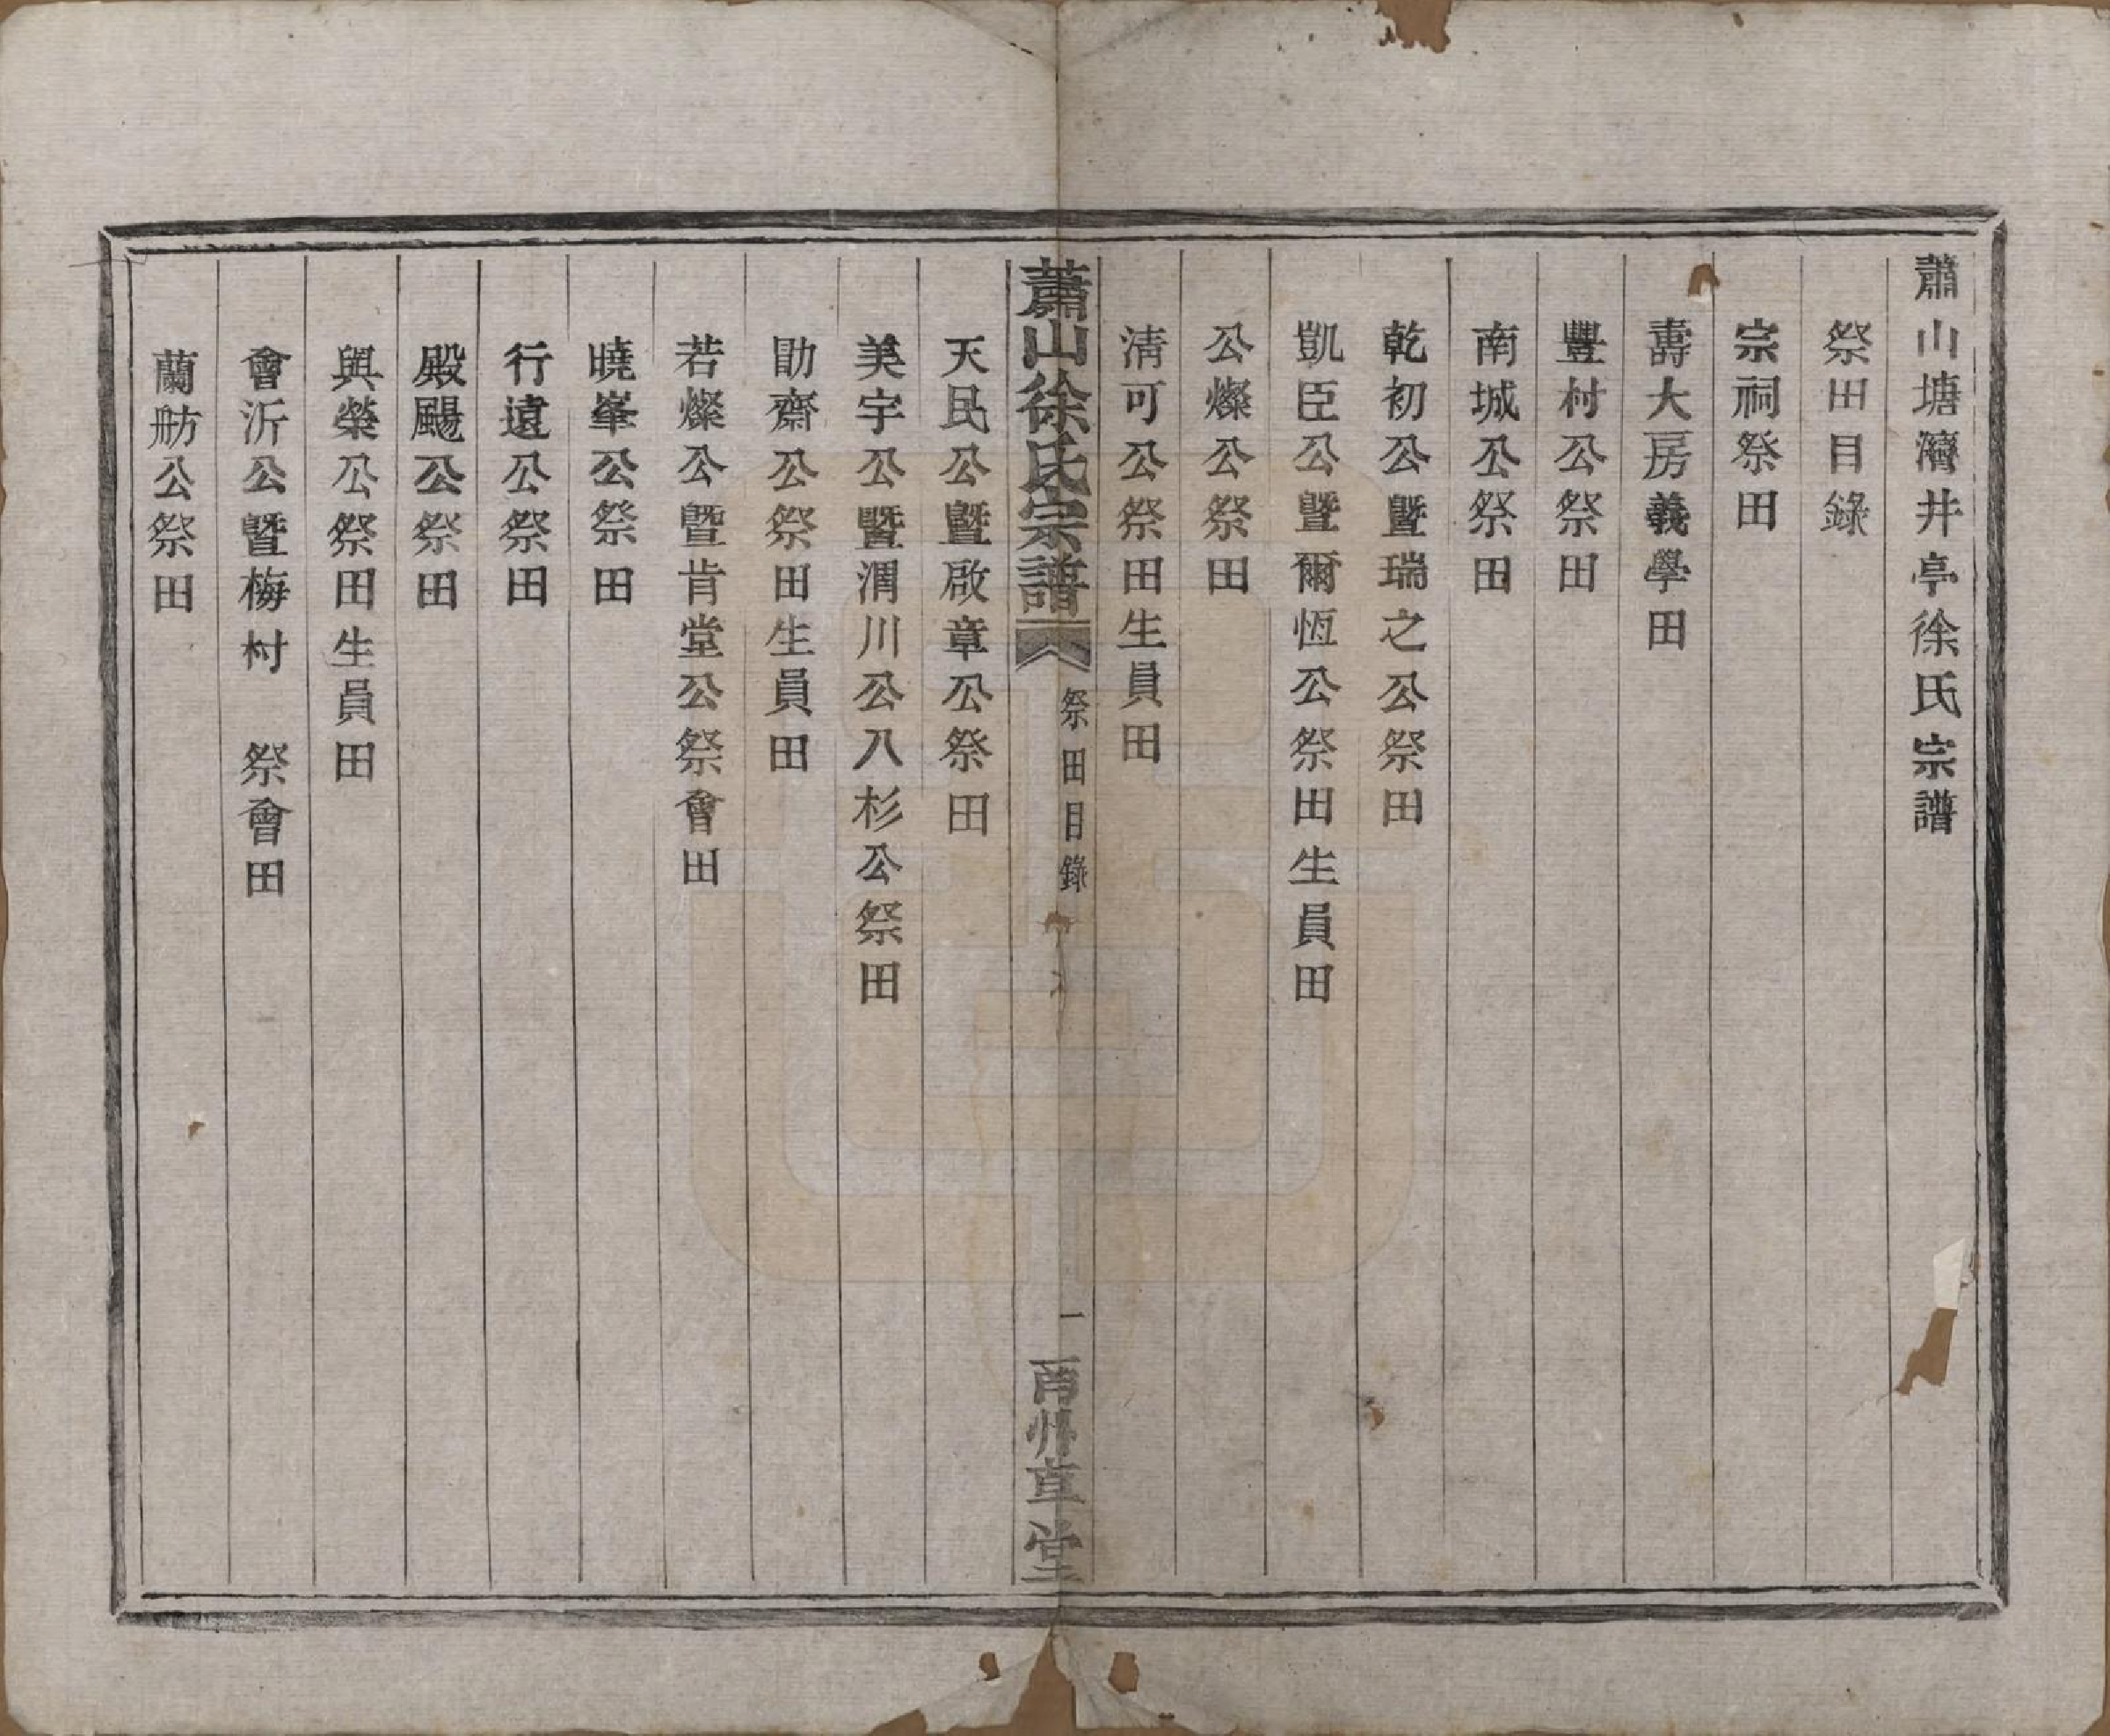 蕭山塘灣井亭徐氏宗譜
祭田目錄
宗祠祭田
壽大房義學田
豐村公祭田
南城公祭田
乾初公暨瑞之公祭田
凱臣公暨爾恆公祭田生員田
公燦公祭田
清可公祭田生員田
蕭山徐氏宗譜
祭田目錄
一
南州草堂
天民公暨啟章公祭田
美宇公暨渭川公八杉公祭田
勖齋公祭田生員田
若燦公暨肯堂公祭會田
曉峯公祭田
行遠公祭田
殿颺公祭田
興榮公祭田生員田
會沂公暨梅村 祭會田
蘭舫公祭田